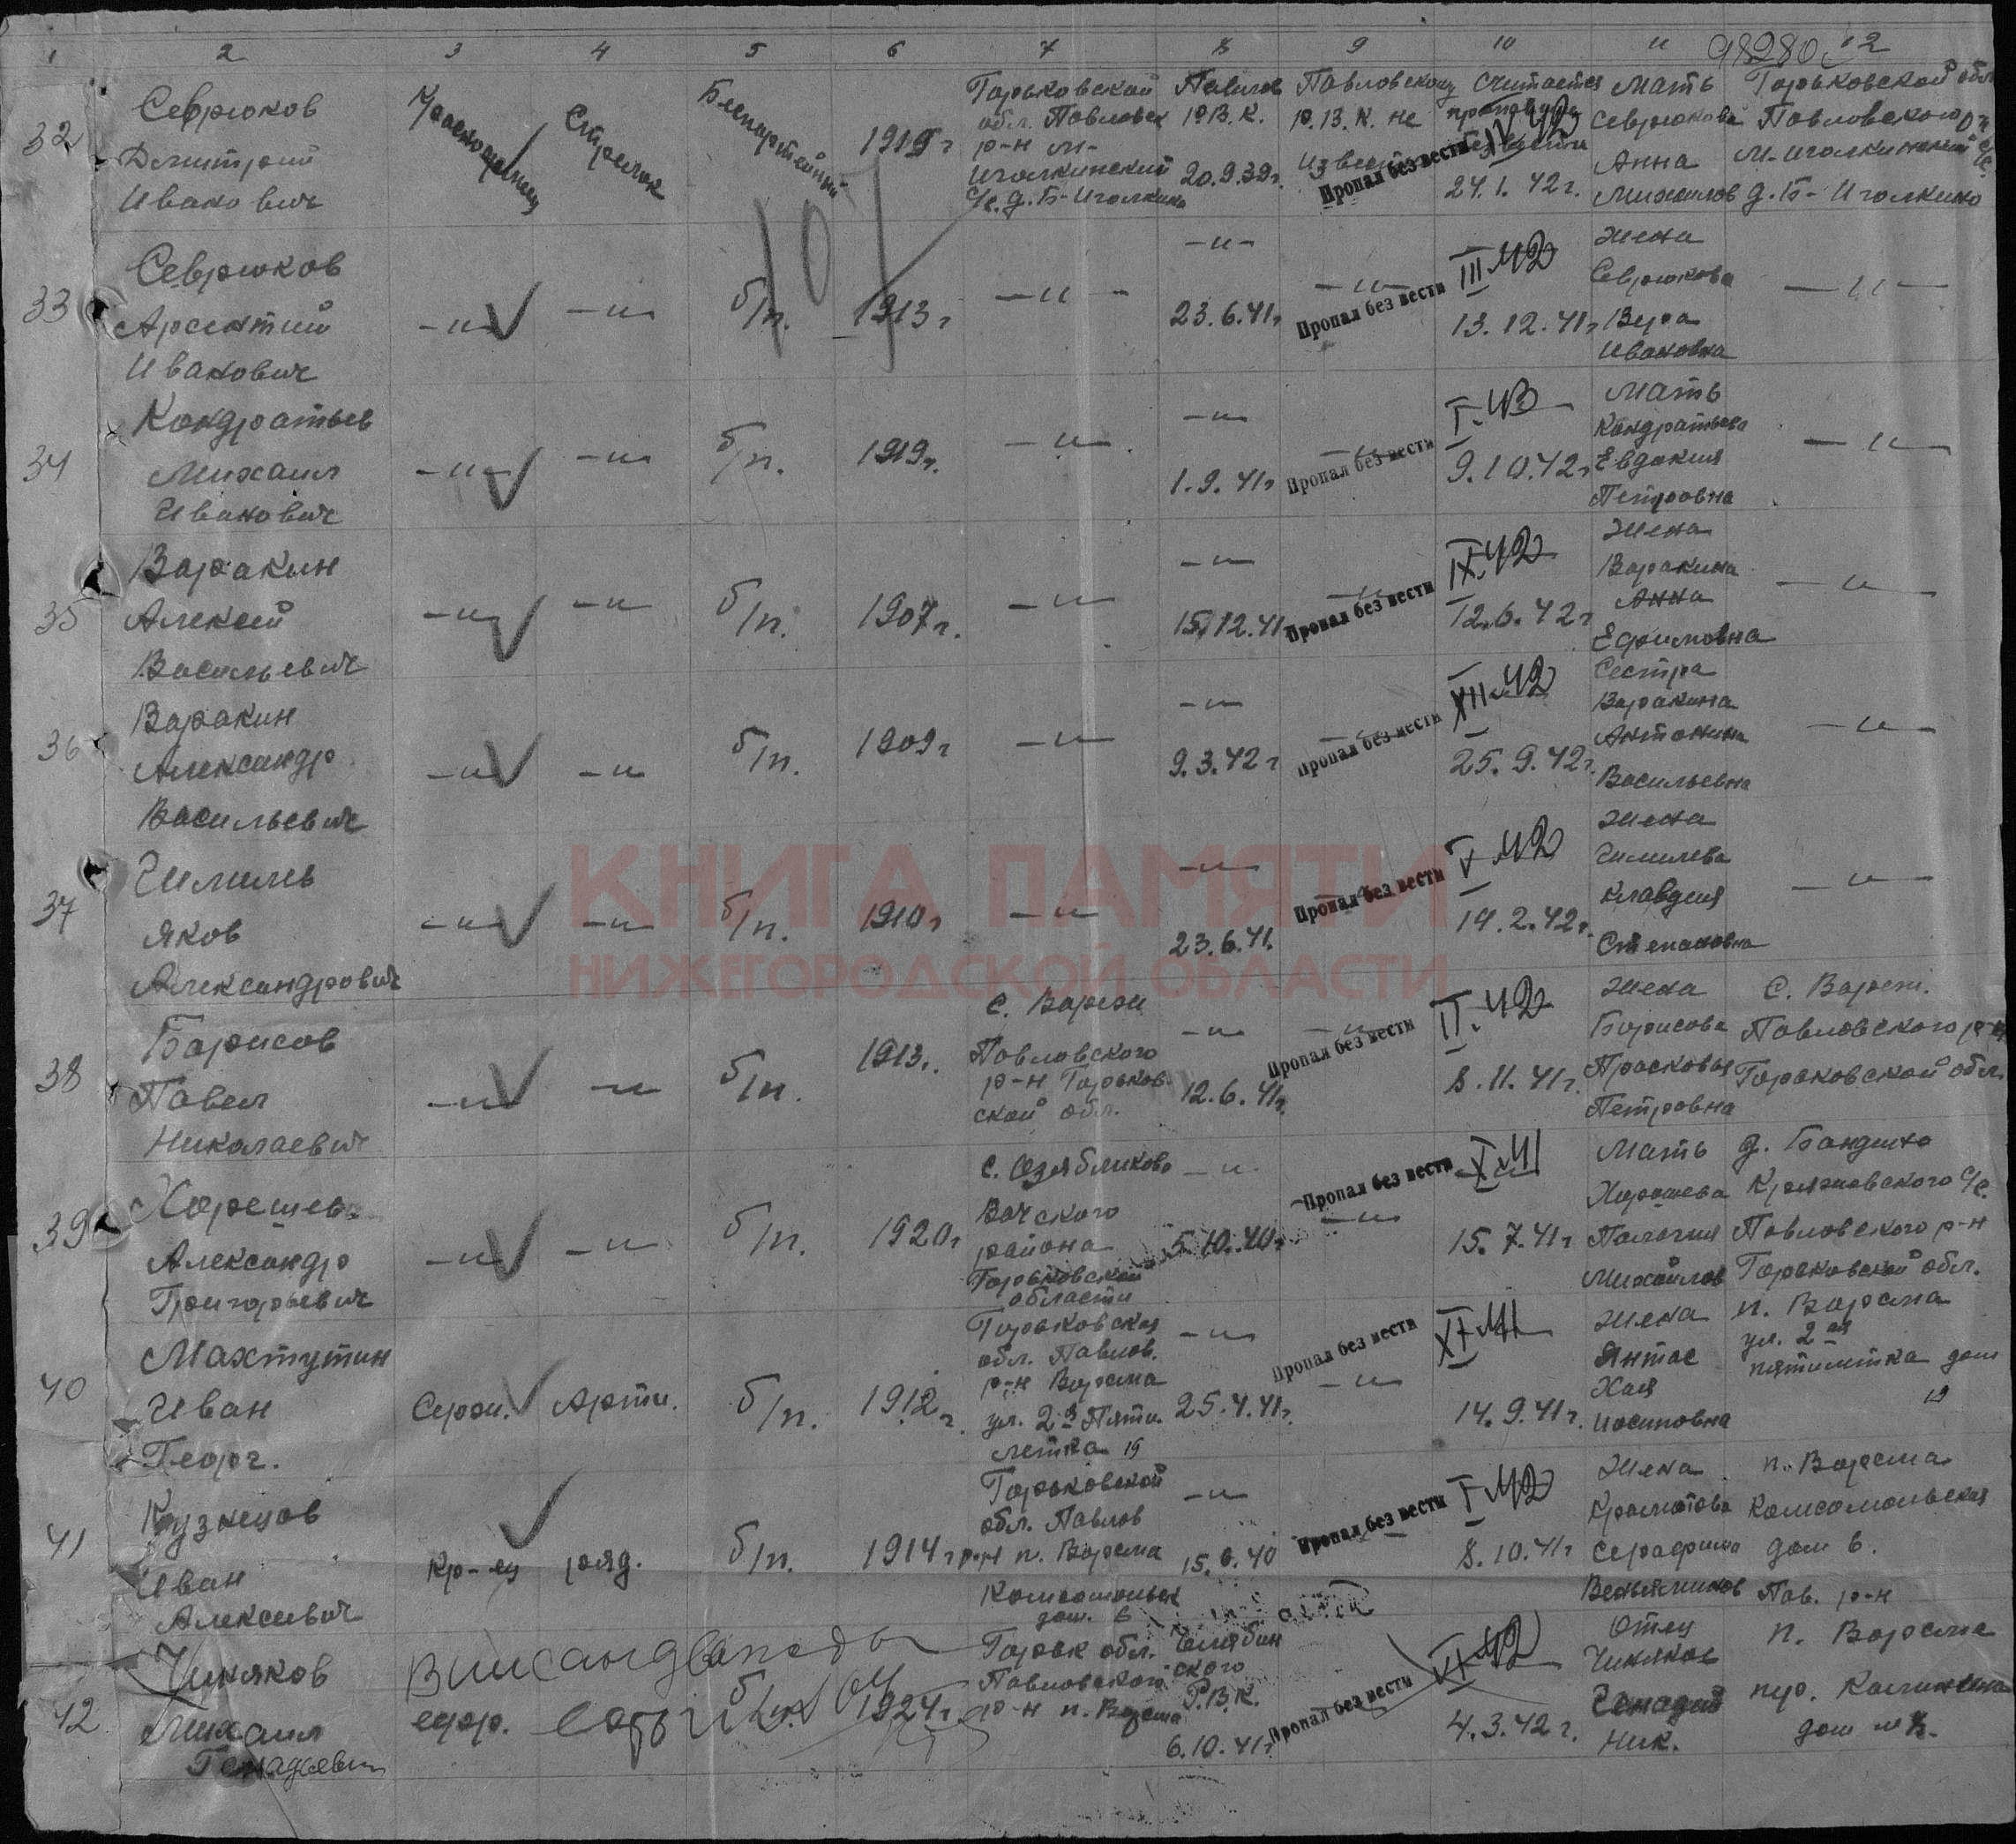 1 2 3 4 5 6 7 8 9 10 11 12
98280
32
Севрюков
Дмитрий
Иванович
Красноармеец
Стрелок
Беспартейный
1919 г
Горьковской
обл. Павловск
р-н М-
Иголкинский
с/с. д. Б-Иголкино
Павлов
Р.В.К.
20.9.39г.
Павловскому
Р.В.К. не
извест
Пропал без вести
Считается
24.1.42г.
Мать
Севрюкова
Анна
Михайлов
Горьковской обл
Павловского р-н
М-Иголкинский с/с.
д. Б-Иголкино
101
33
Севрюков
Арсентий
Иванович
-"- -"- б/п. 1913 г -"- -"-
23.6.41г
-"-
Пропал без вести
III.42
13.12.41г
Жена
Севрюкова
Вера
Ивановна
-"-
34
Кондратьев
Михаил
Иванович
-"- -"- б/п. 1919г. -"- -"-
1.9.41г
-"-
Пропал без вести
I.43
9.10.42г
Мать
Кондратьева
Евдокия
Петровна
-"-
35
Варакин
Алексей
Васильевич
-"- -"- б/п. 1907г. -"- -"-
15.12.41
-"-
Пропал без вести
IX.42
12.6.42г
Жена
Варакина
Анна
Ефимовна
-"-
36
Варакин
Александр
Васильевич
-"- -"- б/п. 1909г -"- -"-
9.3.42г
-"-
Пропал без вести
XII.42
25.9.42г.
Сестра
Варакина
Антонина
Васильевна
-"-
37
Чимилев
Яков
Александрович
-"- -"- б/п. 1910г -"- -"-
23.6.41.
Пропал без вести
V.42
14.2.42г.
Жена
Чимилева
Клавдия
Степановна
-"-
38
Борисов
Павел
Николаевич
-"- -"- б/п. 1913.
с. Вареж
Павловского
р-н Горьков
ской обл.
-"-
12.6.41г.
-"-
Пропал без вести
II.42
8.11.41г.
Жена
Борисова
Прасковья
Петровна
с. Вареж.
Павловского р-н
Горьковской обл.
39
Хорошев
Александр
Григорьевич
-"- -"- б/п. 1920г
с. Озябликово
Вачского
района
Горьковской
области
-"-
5.10.40г
Пропал без вести
-"-
X.41
15.7.41г
Мать
Хорошева
Палагия
Михайлов
д. Бандино
Кряжновского с/с.
Павловского р-н
Горьковской обл.
40
Махтутин
Иван
Георг.
Серж. Арти. б/п. 1912 г.
Горьковская
обл. Павлов.
р-н Ворсма
ул. 2я Пяти
летка 19
-"-
25.4.41г.
Пропал без вести
-"-
XI.41
14.9.41г.
Жена
Янтас
Хая
Иосиповна
п. Ворсма
ул. 2ая
пятилетка дом
19
41
Кузнецов
Иван
Алексеевич
Кр-ец ряд. б/п. 1914г
Горьковской
обл. Павлов
р-н п. Ворсма
Комсомольск
дом. 6
-"-
15.6.40
Пропал без вести
I.42
8.10.41г
Жена
Серафима
п. Ворсма
Комсомольская
дом 6.
Пав. р-н
42
Чикяков
Михаил
Генадьевич
ефр. б/п. 1924г.
Горьк обл.
Павловской
р-н п. Ворсма
Челябин
ского
Р.В.К.
6.10.41г.
Пропал без вести
VI.42
4.3.42г.
Отец
Чикяков
Генадий
Ник.
п. Ворсма
пер. Калинина
дом
КНИГА ПАМЯТИ
НИЖЕГОРОДСКОЙ ОБЛАСТИ